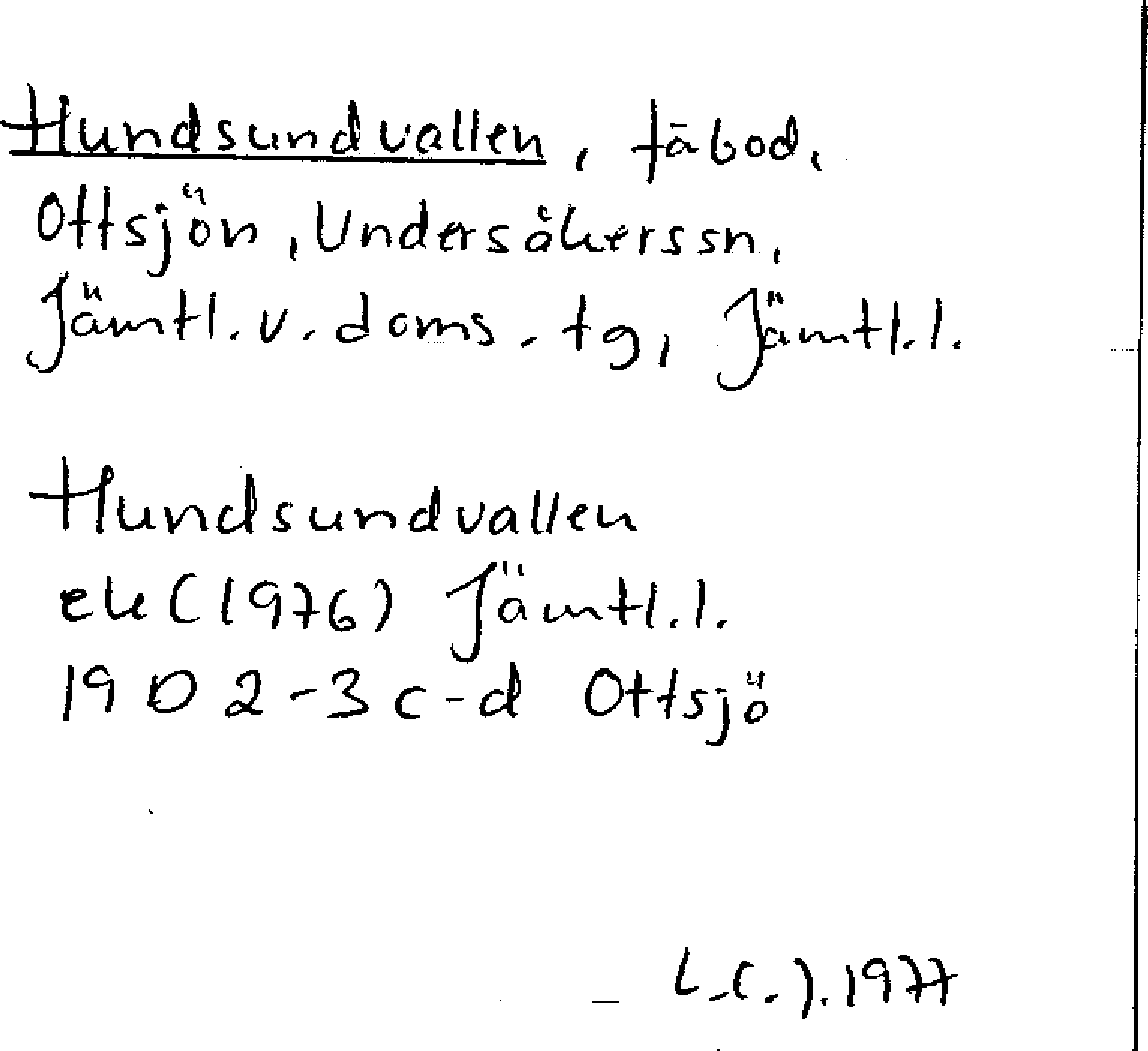 Hundsundvallen, fäbod,
Ottsjön, Undersåkerssn,
Jämtl.v.doms.tg, Jämtl.l.
Hundsundvallen
ek(1976) Jämtl.l.
19D 2-3c-d Ottsjö
L.C.J.1977